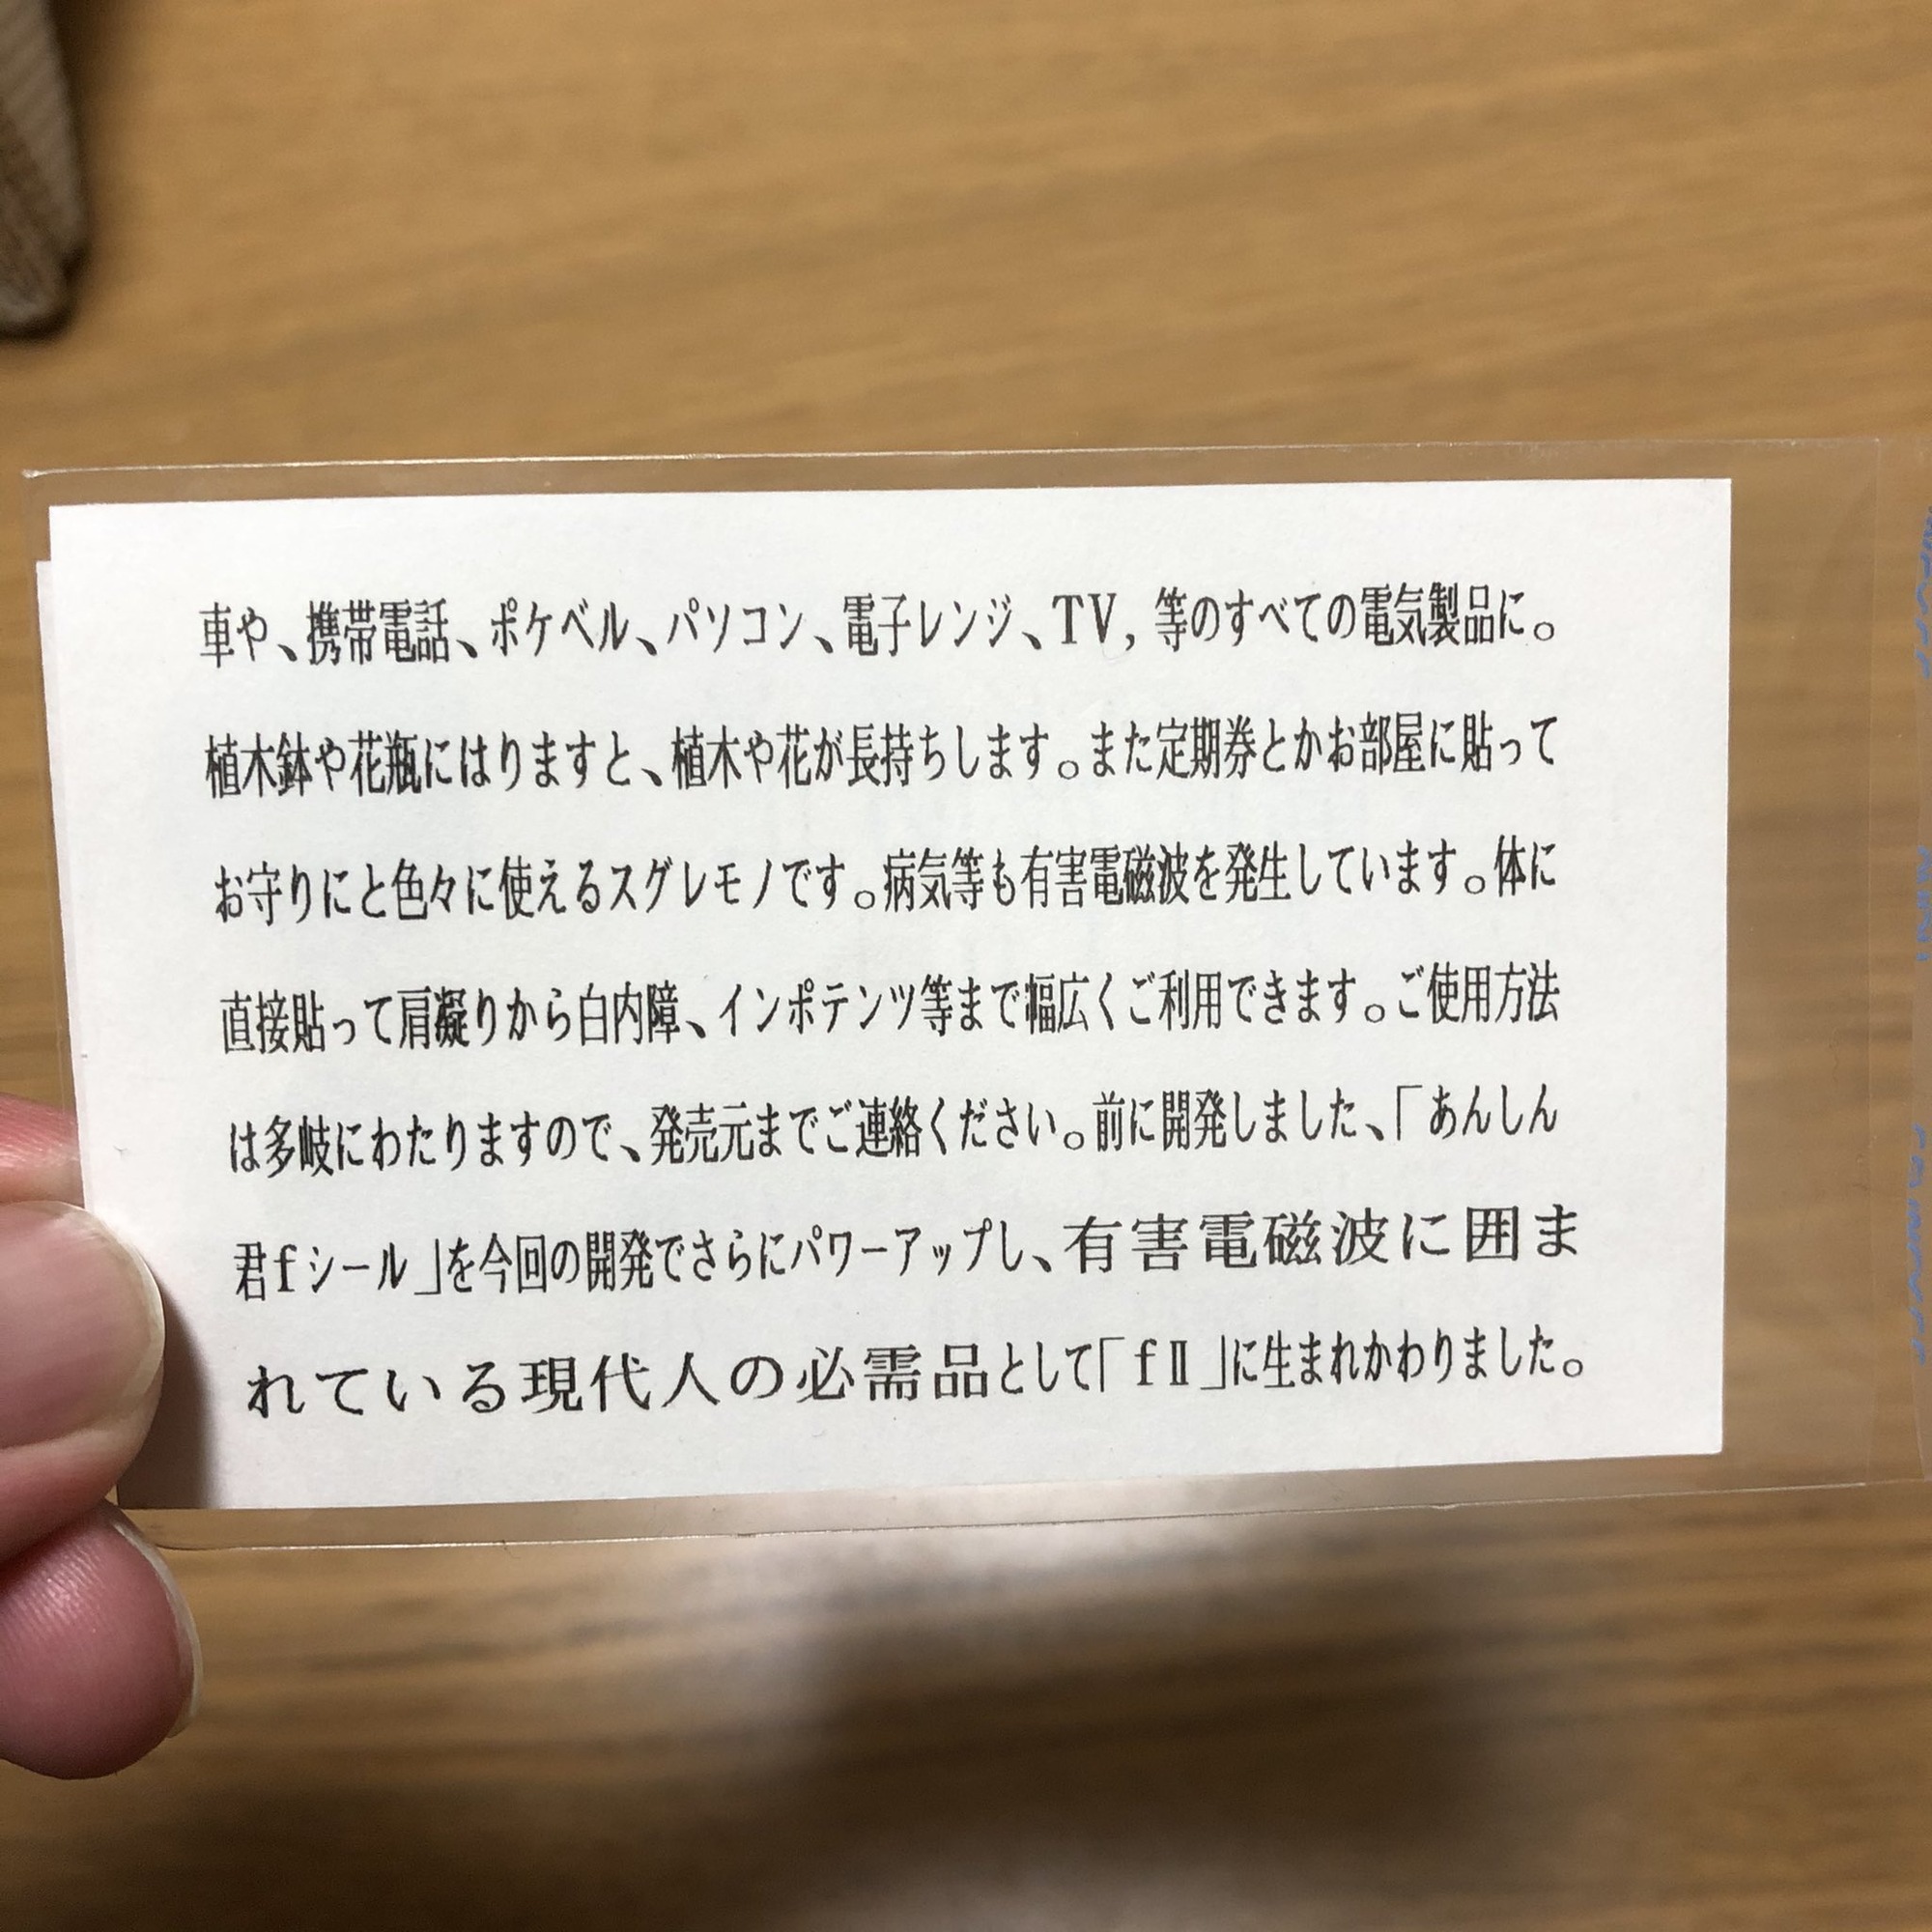 車や、携帯電話、ポケベル、パソコン、電子レンジ、TV, 等のすべての電気製品に。
植木鉢や花瓶にはりますと、植木や花が長持ちします。また定期券とかお部屋に貼って
お守りにと色々に使えるスグレモノです。病気等も有害電磁波を発生しています。体に
直接貼って肩凝りから白内障、インポテンツ等まで幅広くご利用できます。ご使用方法
は多岐にわたりますので、発売元までご連絡ください。前に開発しました、「あんしん
君fシール」を今回の開発でさらにパワーアップし、有害電磁波に囲ま
れている現代人の必需品として「fⅡ」に生まれかわりました。